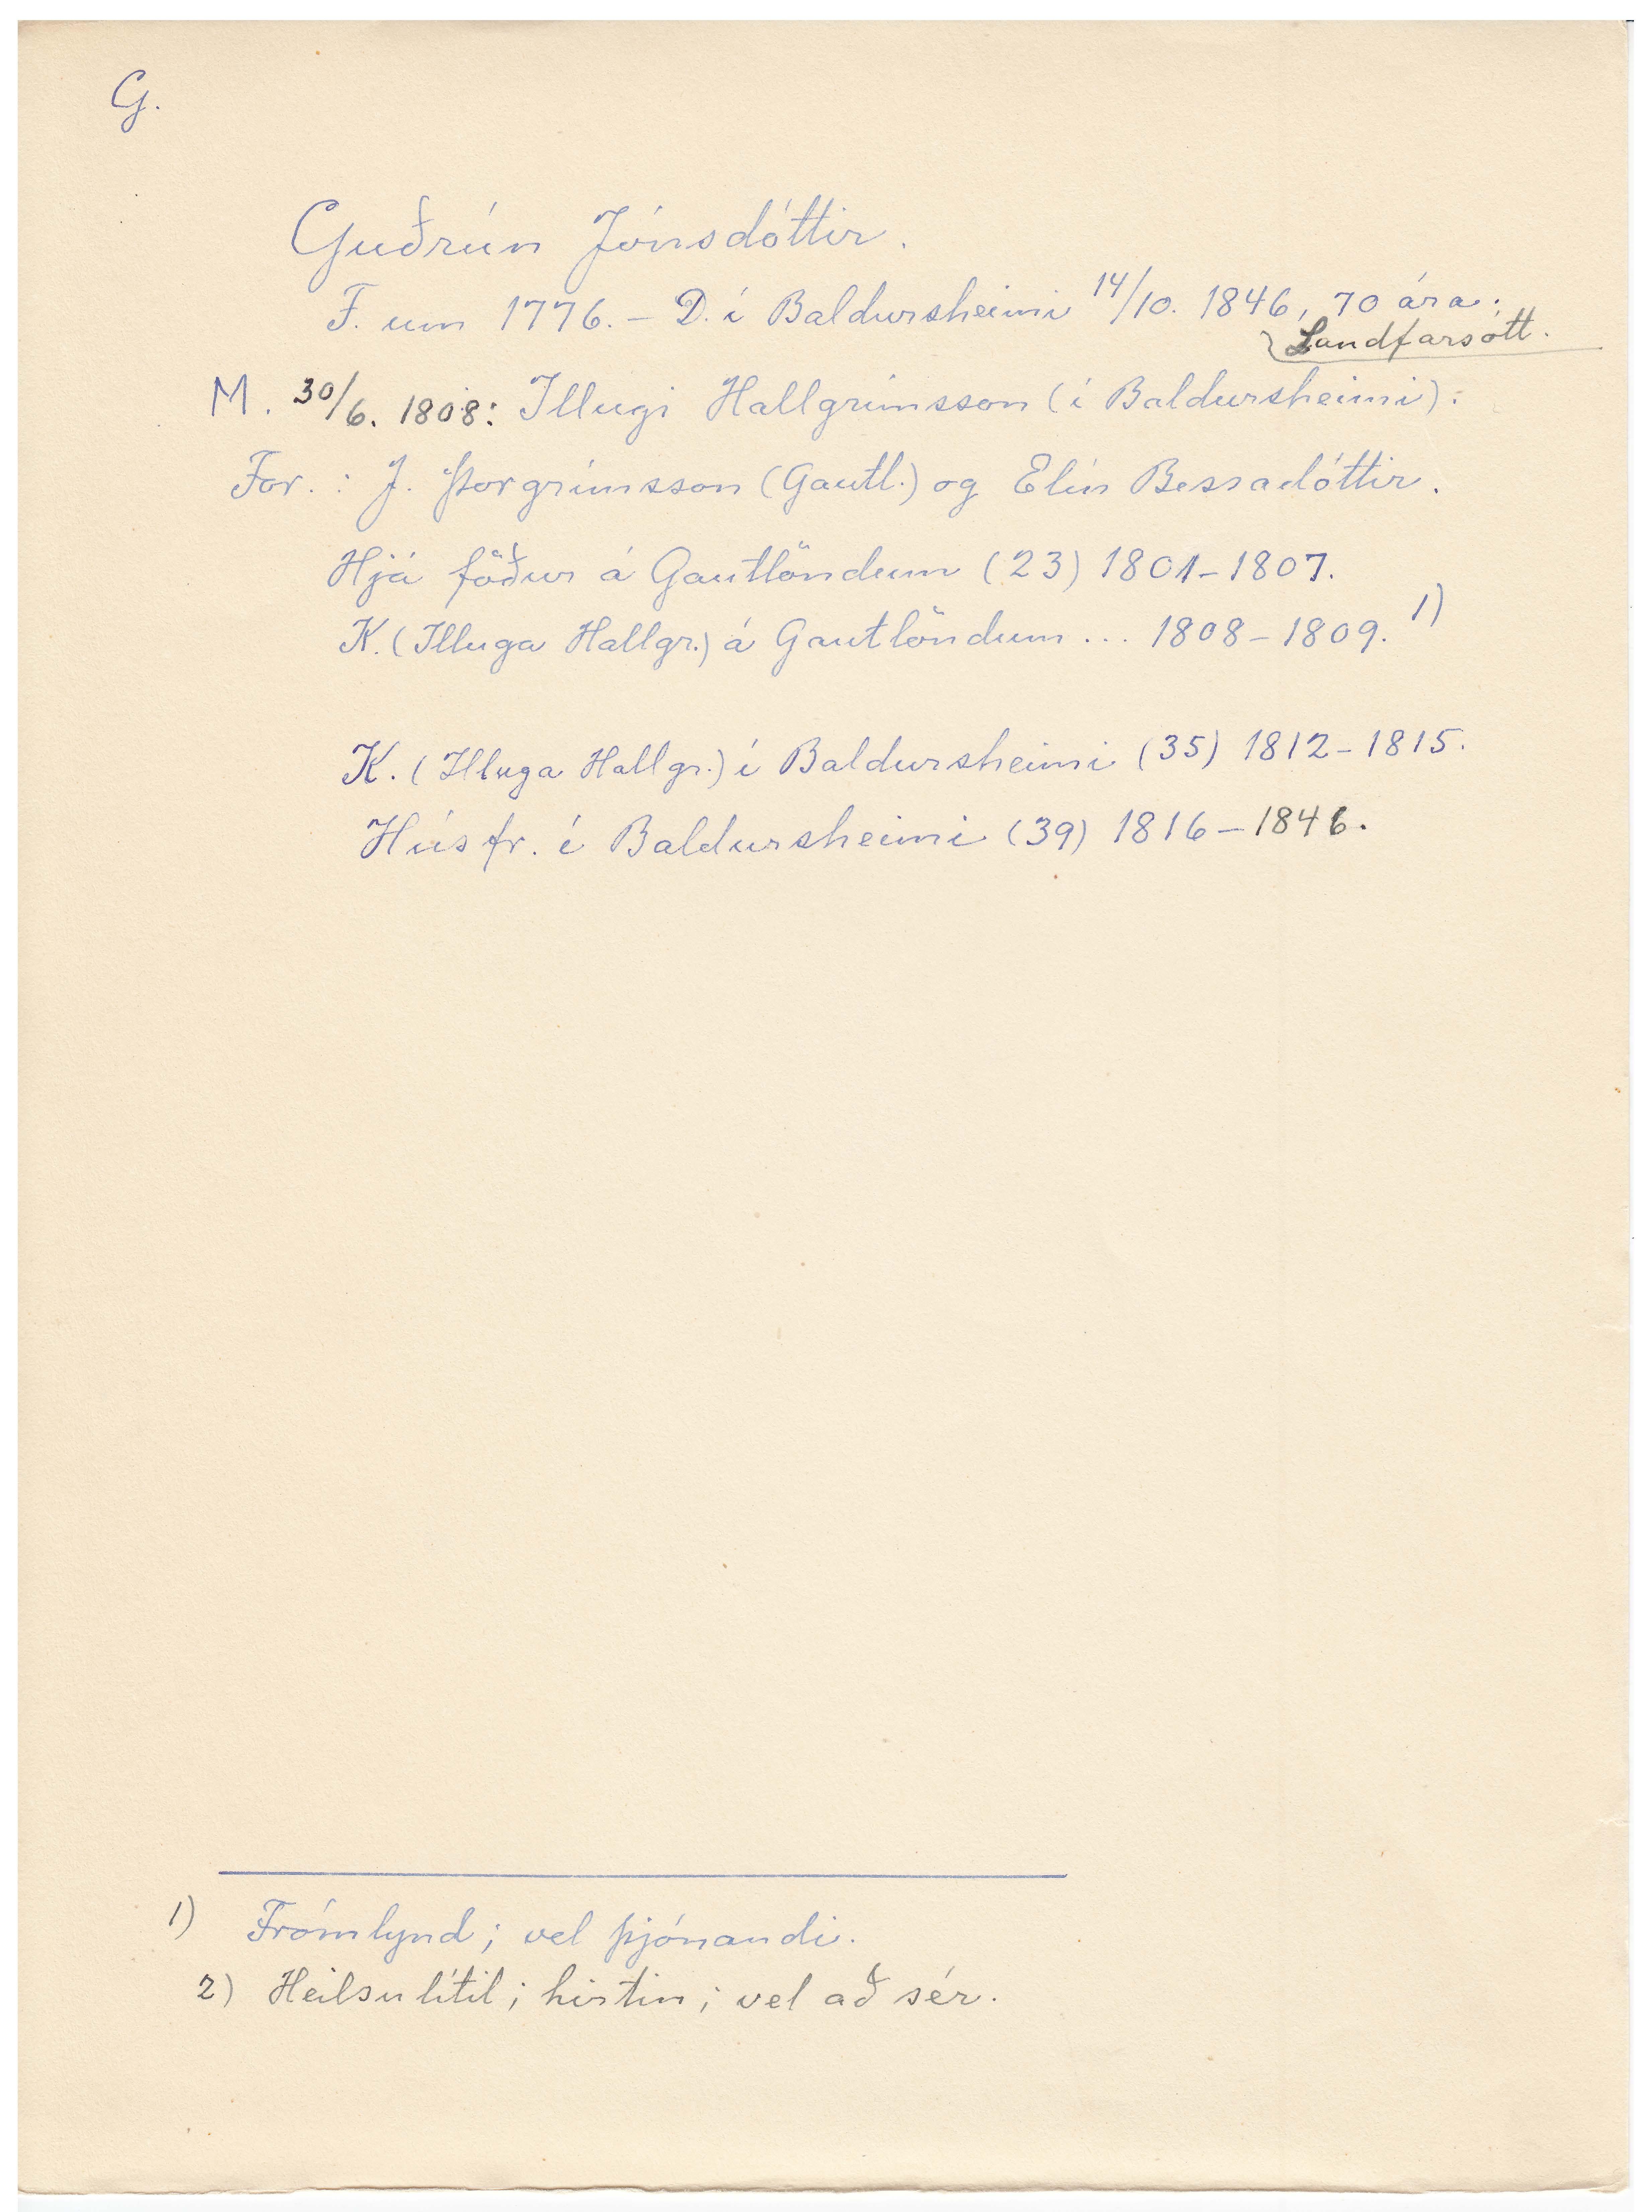 G.
Guðrún Jónsdóttir.
F. um 1776. – D. í Baldursheimi 14/10. 1846, 70 ára;
Landfarsótt.
M. 30/6. 1808: Illugi Hallgrímsson (í Baldursheimi).
For.: J. Þorgrímsson (Gautl.) og Elín Bessadóttir.
Hjá föður á Gautlöndum (23) 1801–1807.
K. (Illuga Hallgr.) á Gautlöndum ... 1808–1809. 1)
K. (Illuga Hallgr.) í Baldursheimi (35) 1812–1815.
Húsfr. í Baldursheimi (39) 1816–1846.
1) Frómlynd; vel þjónandi.
2) Heilsulítil; hirtin; vel að sér.